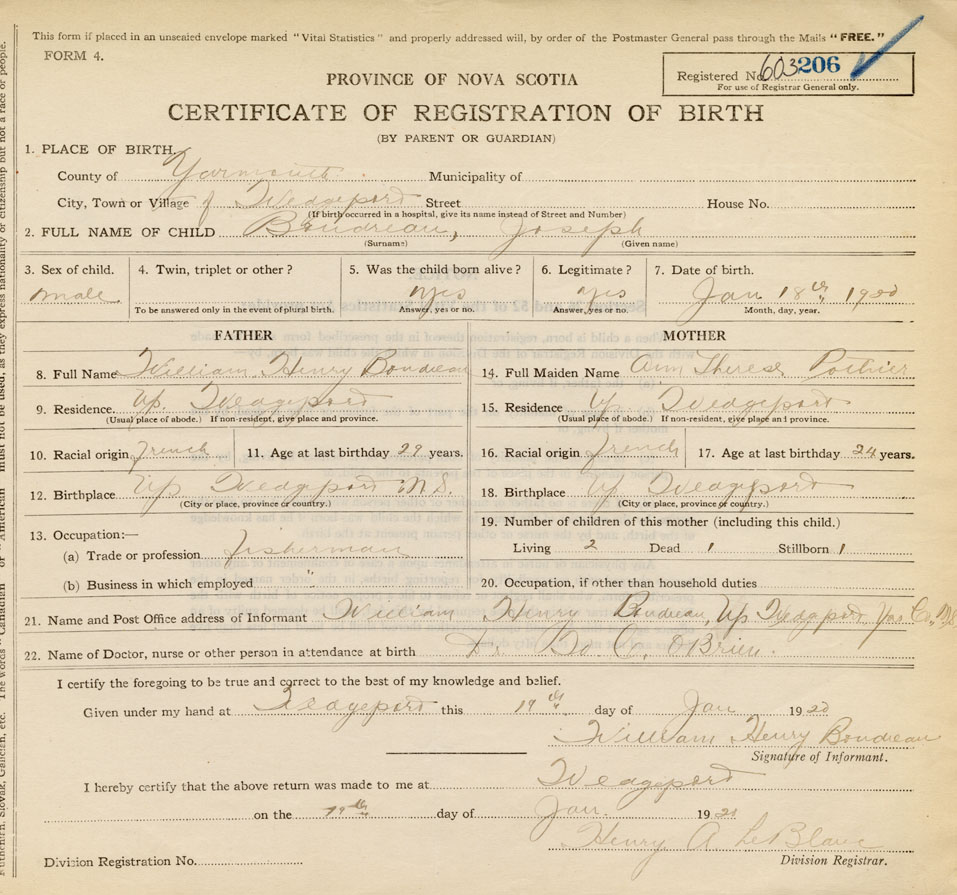 This form if placed in an unsealed envelope marked "Vital Statistics" and properly addressed will, by order of the Postmaster General pass through the Mails "FREE."
FORM 4.
Registered No. 603206
For use of Registrar General only.
PROVINCE OF NOVA SCOTIA
CERTIFICATE OF REGISTRATION OF BIRTH
(BY PARENT OR GUARDIAN)
1. PLACE OF BIRTH.
County of Yarmouth. Municipality of
City, Town or Village of Wedgeport Street House No.
(If birth occurred in a hospital, give its name instead of Street and Number)
2. FULL NAME OF CHILD Boudreau, Joseph
(Surname) (Given name)
3. Sex of child. 4. Twin, triplet or other? 5. Was the child born alive? 6. Legitimate? 7. Date of birth.
male yes yes Jan 18th
To be answered only in the event of plural birth. Answer, yes or no. Answer, yes or no. Month, day, year.
FATHER MOTHER
8. Full Name William Henry Boudreau 14. Full Maiden Name Ann Therese Pothier
9. Residence. Up. Wedgeport 15. Residence Up Wedgeport
(Usual place of abode.) If non-resident, give place and province. (Usual place of abode.) If non-resident, give place and province.
10. Racial origin French 11. Age at last birthday 29 years. 16. Racial origin French 17. Age at last birthday 24 years.
12. Birthplace Up Wedgeport N.S. 18. Birthplace Up Wedgeport
(City or place, province or country.) (City or place, province or country.)
13. Occupation:— 19. Number of children of this mother (including this child.)
(a) Trade or profession fisherman Living 2 Dead 1 Stillborn 1
(b) Business in which employed " 20. Occupation, if other than household duties
21. Name and Post Office address of Informant William Henry Boudreau, Up Wedgeport Yar Co., N.S
22. Name of Doctor, nurse or other person in attendance at birth Dr. C. O'Brien.
I certify the foregoing to be true and correct to the best of my knowledge and belief.
Given under my hand at Wedgeport this 19th day of Jan 1920
William Henry Boudreau
Signature of Informant.
I hereby certify that the above return was made to me at Wedgeport
on the 19th day of Jan. 19
Henry A. LeBlanc
Division Registration No. Division Registrar.